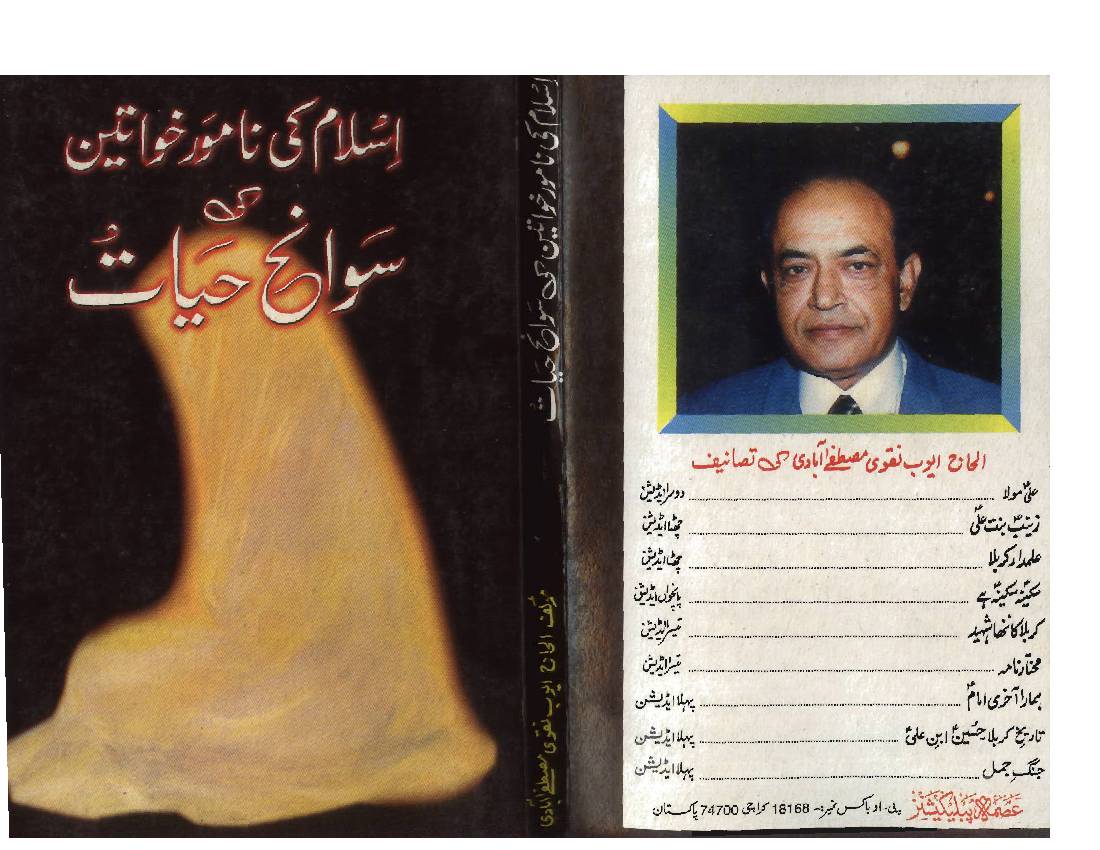 اسلام کی نامور خواتین
کی
سوانح حیات
اسلام کی نامور خواتین کی سوانح حیات
مؤلف الحاج ایوب نقوی مصطفےٰ آبادی
الحاج ایوب نقوی مصطفےٰ آبادی کی تصانیف
علیؑ مولا ........ دوسرا ایڈیشن
زینبؑ بنت علیؑ ........ چھٹا ایڈیشن
علمدار کربلا ........ چھٹا ایڈیشن
سکینہؑ سکینہؑ ہے ........ پانچواں ایڈیشن
کربلا کا ننھا شہید ........ تیسرا ایڈیشن
مختار نامہ ........ تیسرا ایڈیشن
ہمارا آخری امامؑ ........ پہلا ایڈیشن
تاریخ کربلا حسینؑ ابن علیؑ ........ پہلا ایڈیشن
جنگِ جمل ........ پہلا ایڈیشن
عصمہ پبلیکیشنز پی۔ او باکس نمبر:- 18168 کراچی 74700 پاکستان